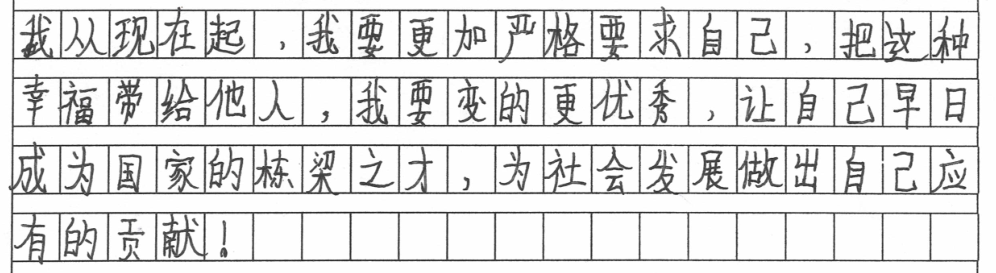 我从现在起，我要更加严格要求自己，把这种
幸福带给他人，我要变的更优秀，让自己早日
成为国家的栋梁之才，为社会发展做出自己应
有的贡献！